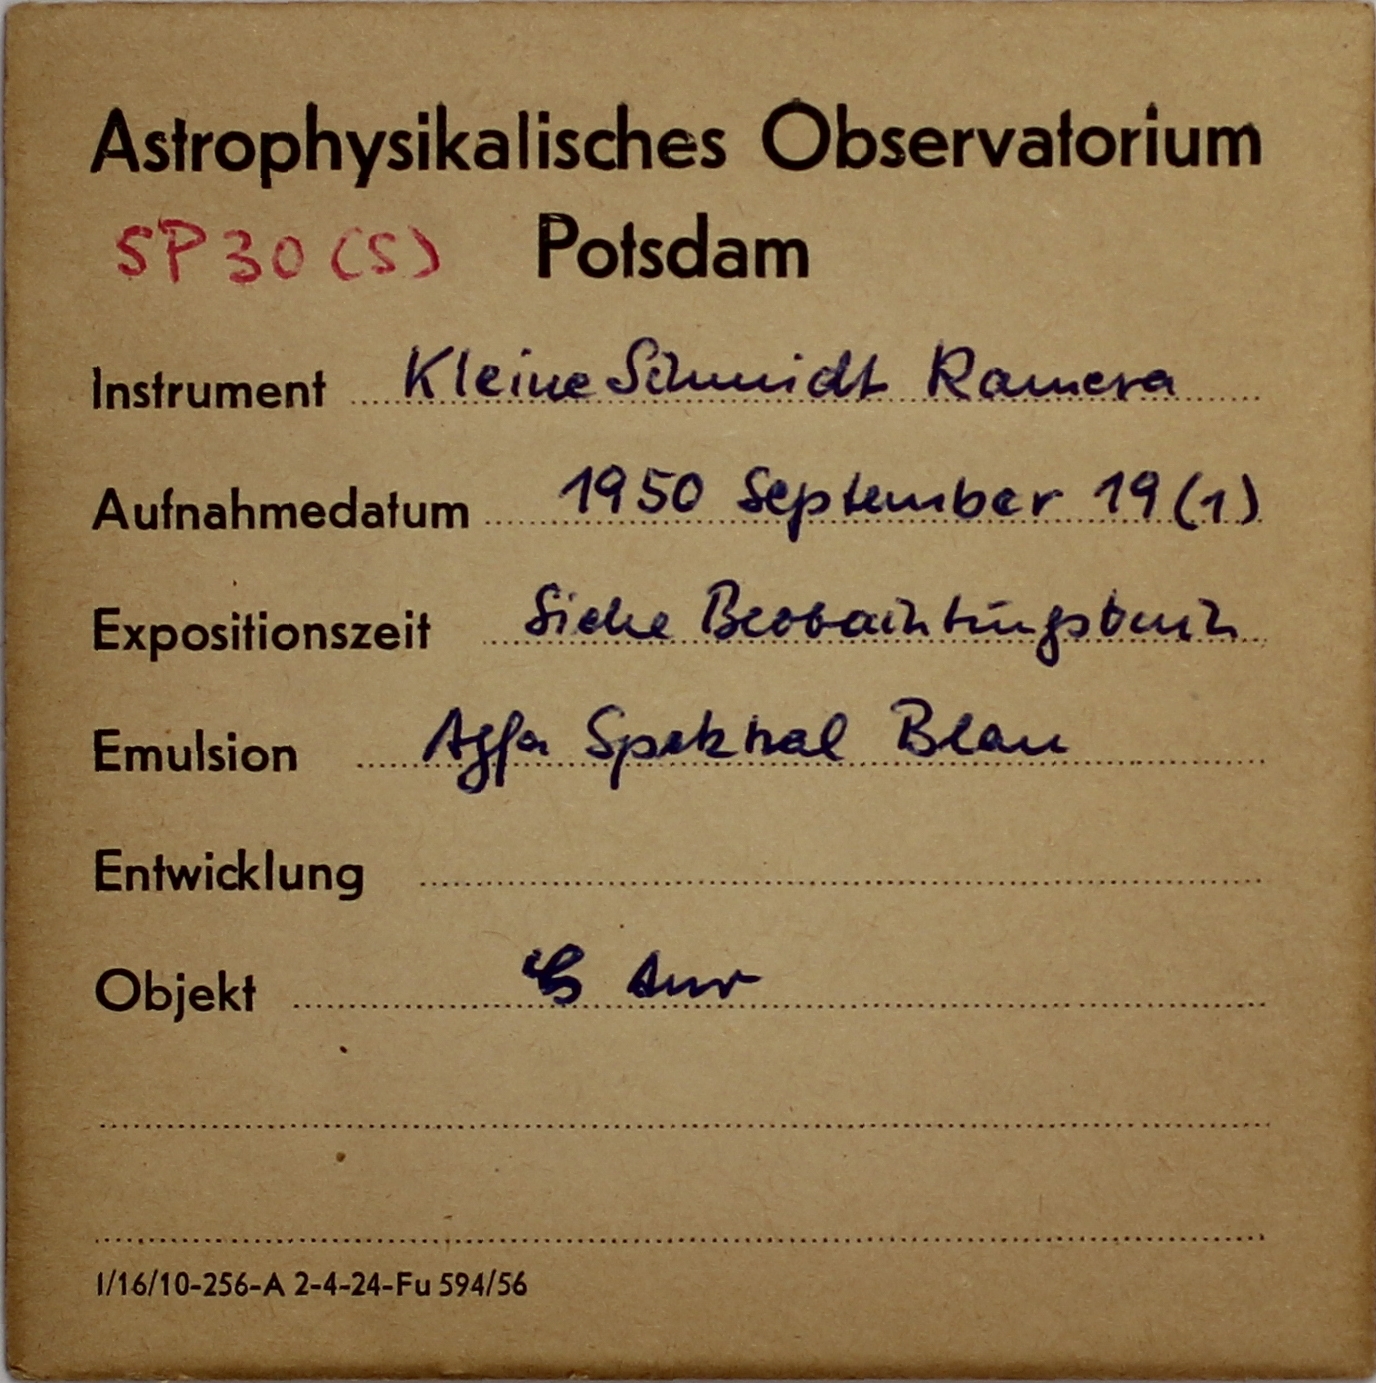 Astrophysikalisches Observatorium
SP 30 (S) Potsdam
Instrument Kleine Schmidt Kamera
Aufnahmedatum 1950 September 19 (1)
Expositionszeit Siehe Beobachtungsbuch
Emulsion Agfa Spektral Blau
Entwicklung
Objekt Aur
I/16/10-256-A 2-4-24-Fu 594/56